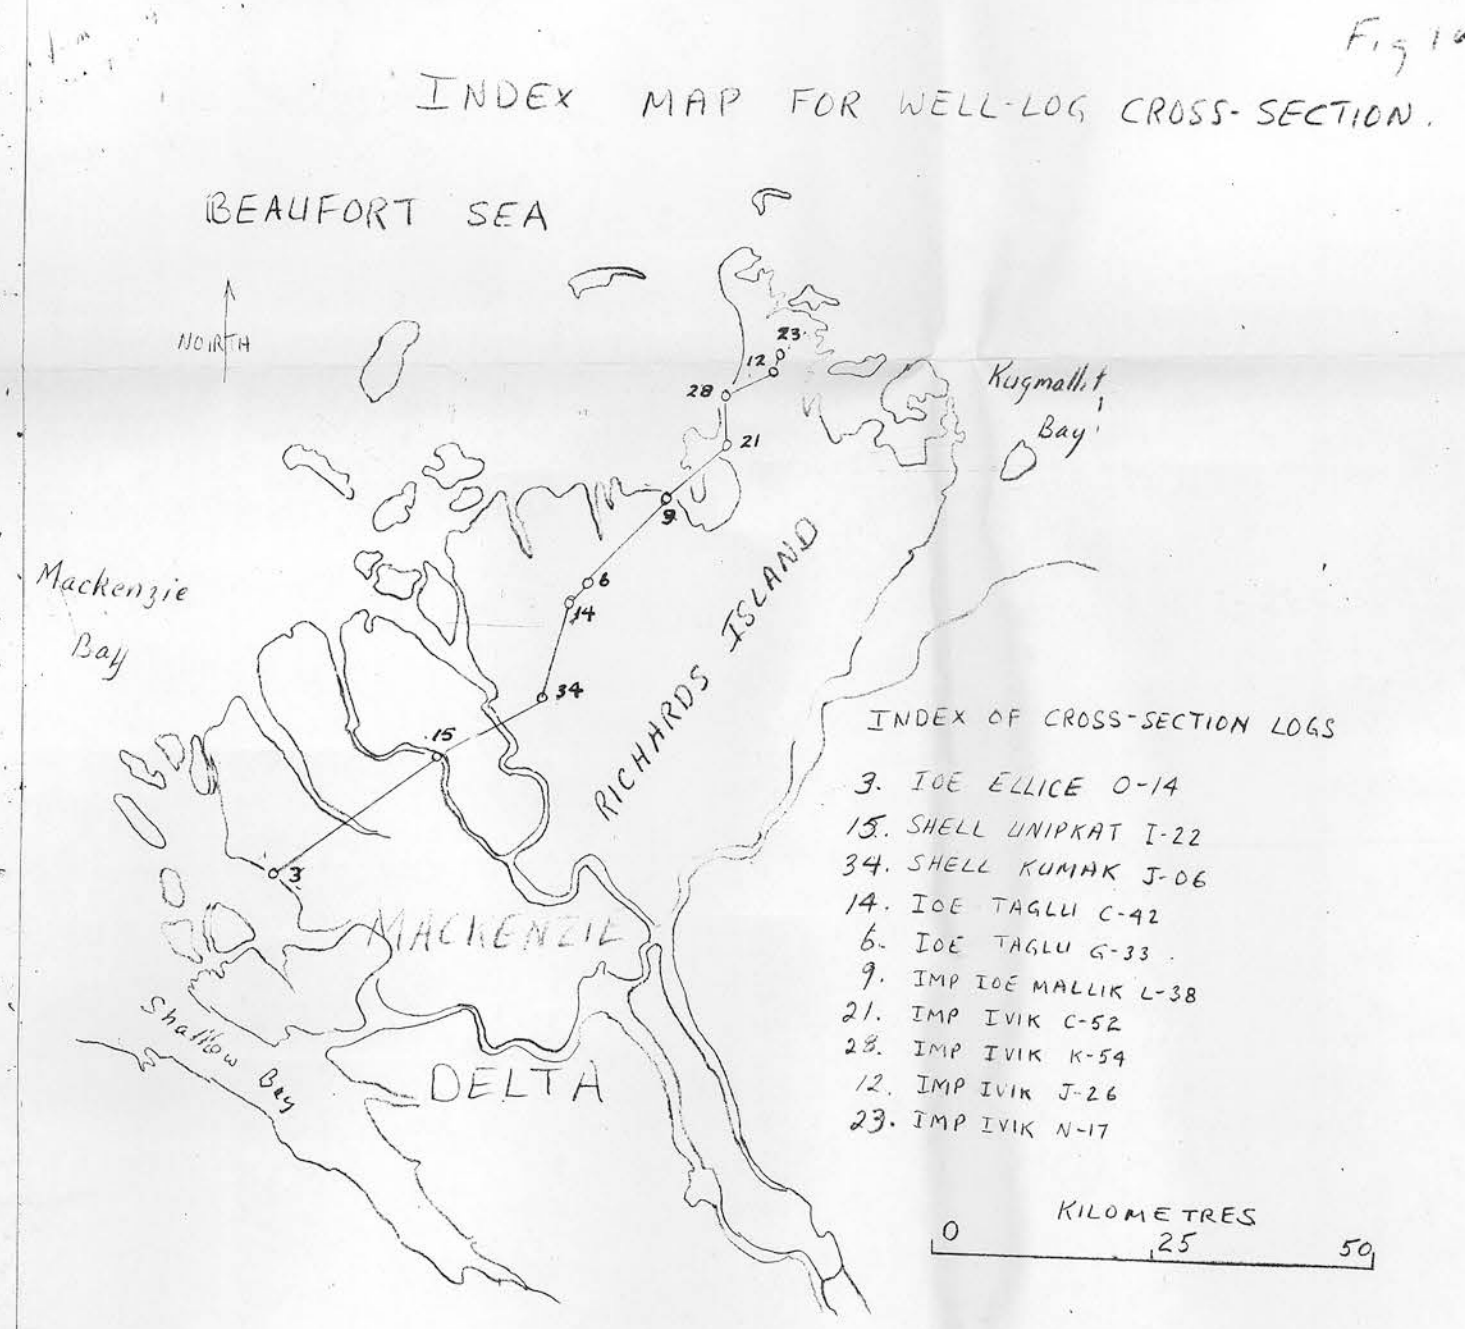 Fig 1a
INDEX MAP FOR WELL-LOG CROSS-SECTION.
BEAUFORT SEA
NORTH
23
12
28
21
Kugmallit
Bay
9
Mackenzie
Bay
6
14
34
15
RICHARDS ISLAND
3
MACKENZIE
DELTA
Shallow Bay
INDEX OF CROSS-SECTION LOGS
3. IOE ELLICE O-14
15. SHELL UNIPKAT I-22
34. SHELL KUMAK J-06
14. IOE TAGLU C-42
6. IOE TAGLU G-33.
9. IMP IOE MALLIK L-38
21. IMP IVIK C-52
28. IMP IVIK K-54
12. IMP IVIK J-26
23. IMP IVIK N-17
KILOMETRES
0 25 50